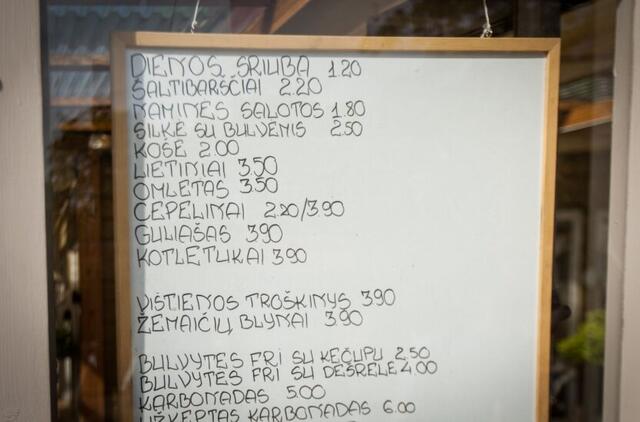 DIENOS SRIUBA 1.20
ŠALTIBARŠČIAI 2.20
NAMINĖS SALOTOS 1.80
SILKĖ SU BULVĖMIS 2.50
KOŠĖ 2.00
LIETINIAI 3.50
OMLETAS 3.50
CEPELINAI 2.20/3.90
GULIAŠAS 3.90
KOTLETUKAI 3.90
VIŠTIENOS TROŠKINYS 3.90
ŽEMAIČIŲ BLYNAI 3.90
BULVYTĖS FRI SU KEČUPU 2.50
BULVYTĖS FRI SU DEŠRELE 4.00
KARBONADAS 5.00
UŽKEPTAS KARBONADAS 6.00